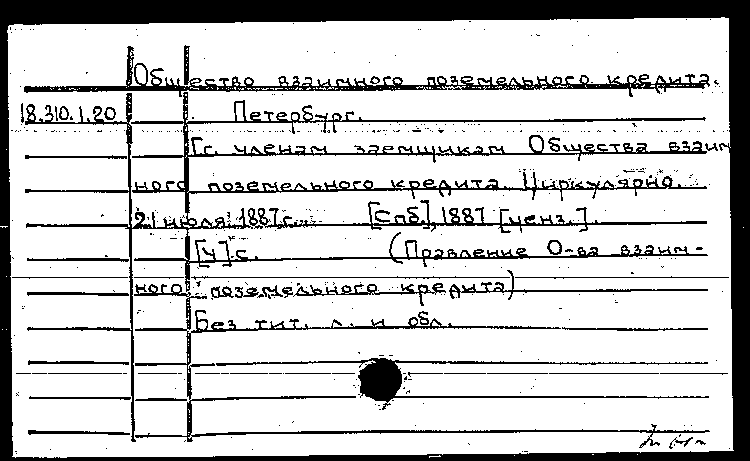 Общество взаимного поземельного кредита.
18.310.1.20 Петербург.
Гг. членам заемщикам Общества взаим
ного поземельного кредита. Циркулярно.
21 июля 1887 г. [Спб.], 1887 [ценз.].
[4] с. (Правление О-ва взаим-
ного поземельного кредита)
Без тит. л. и обл.